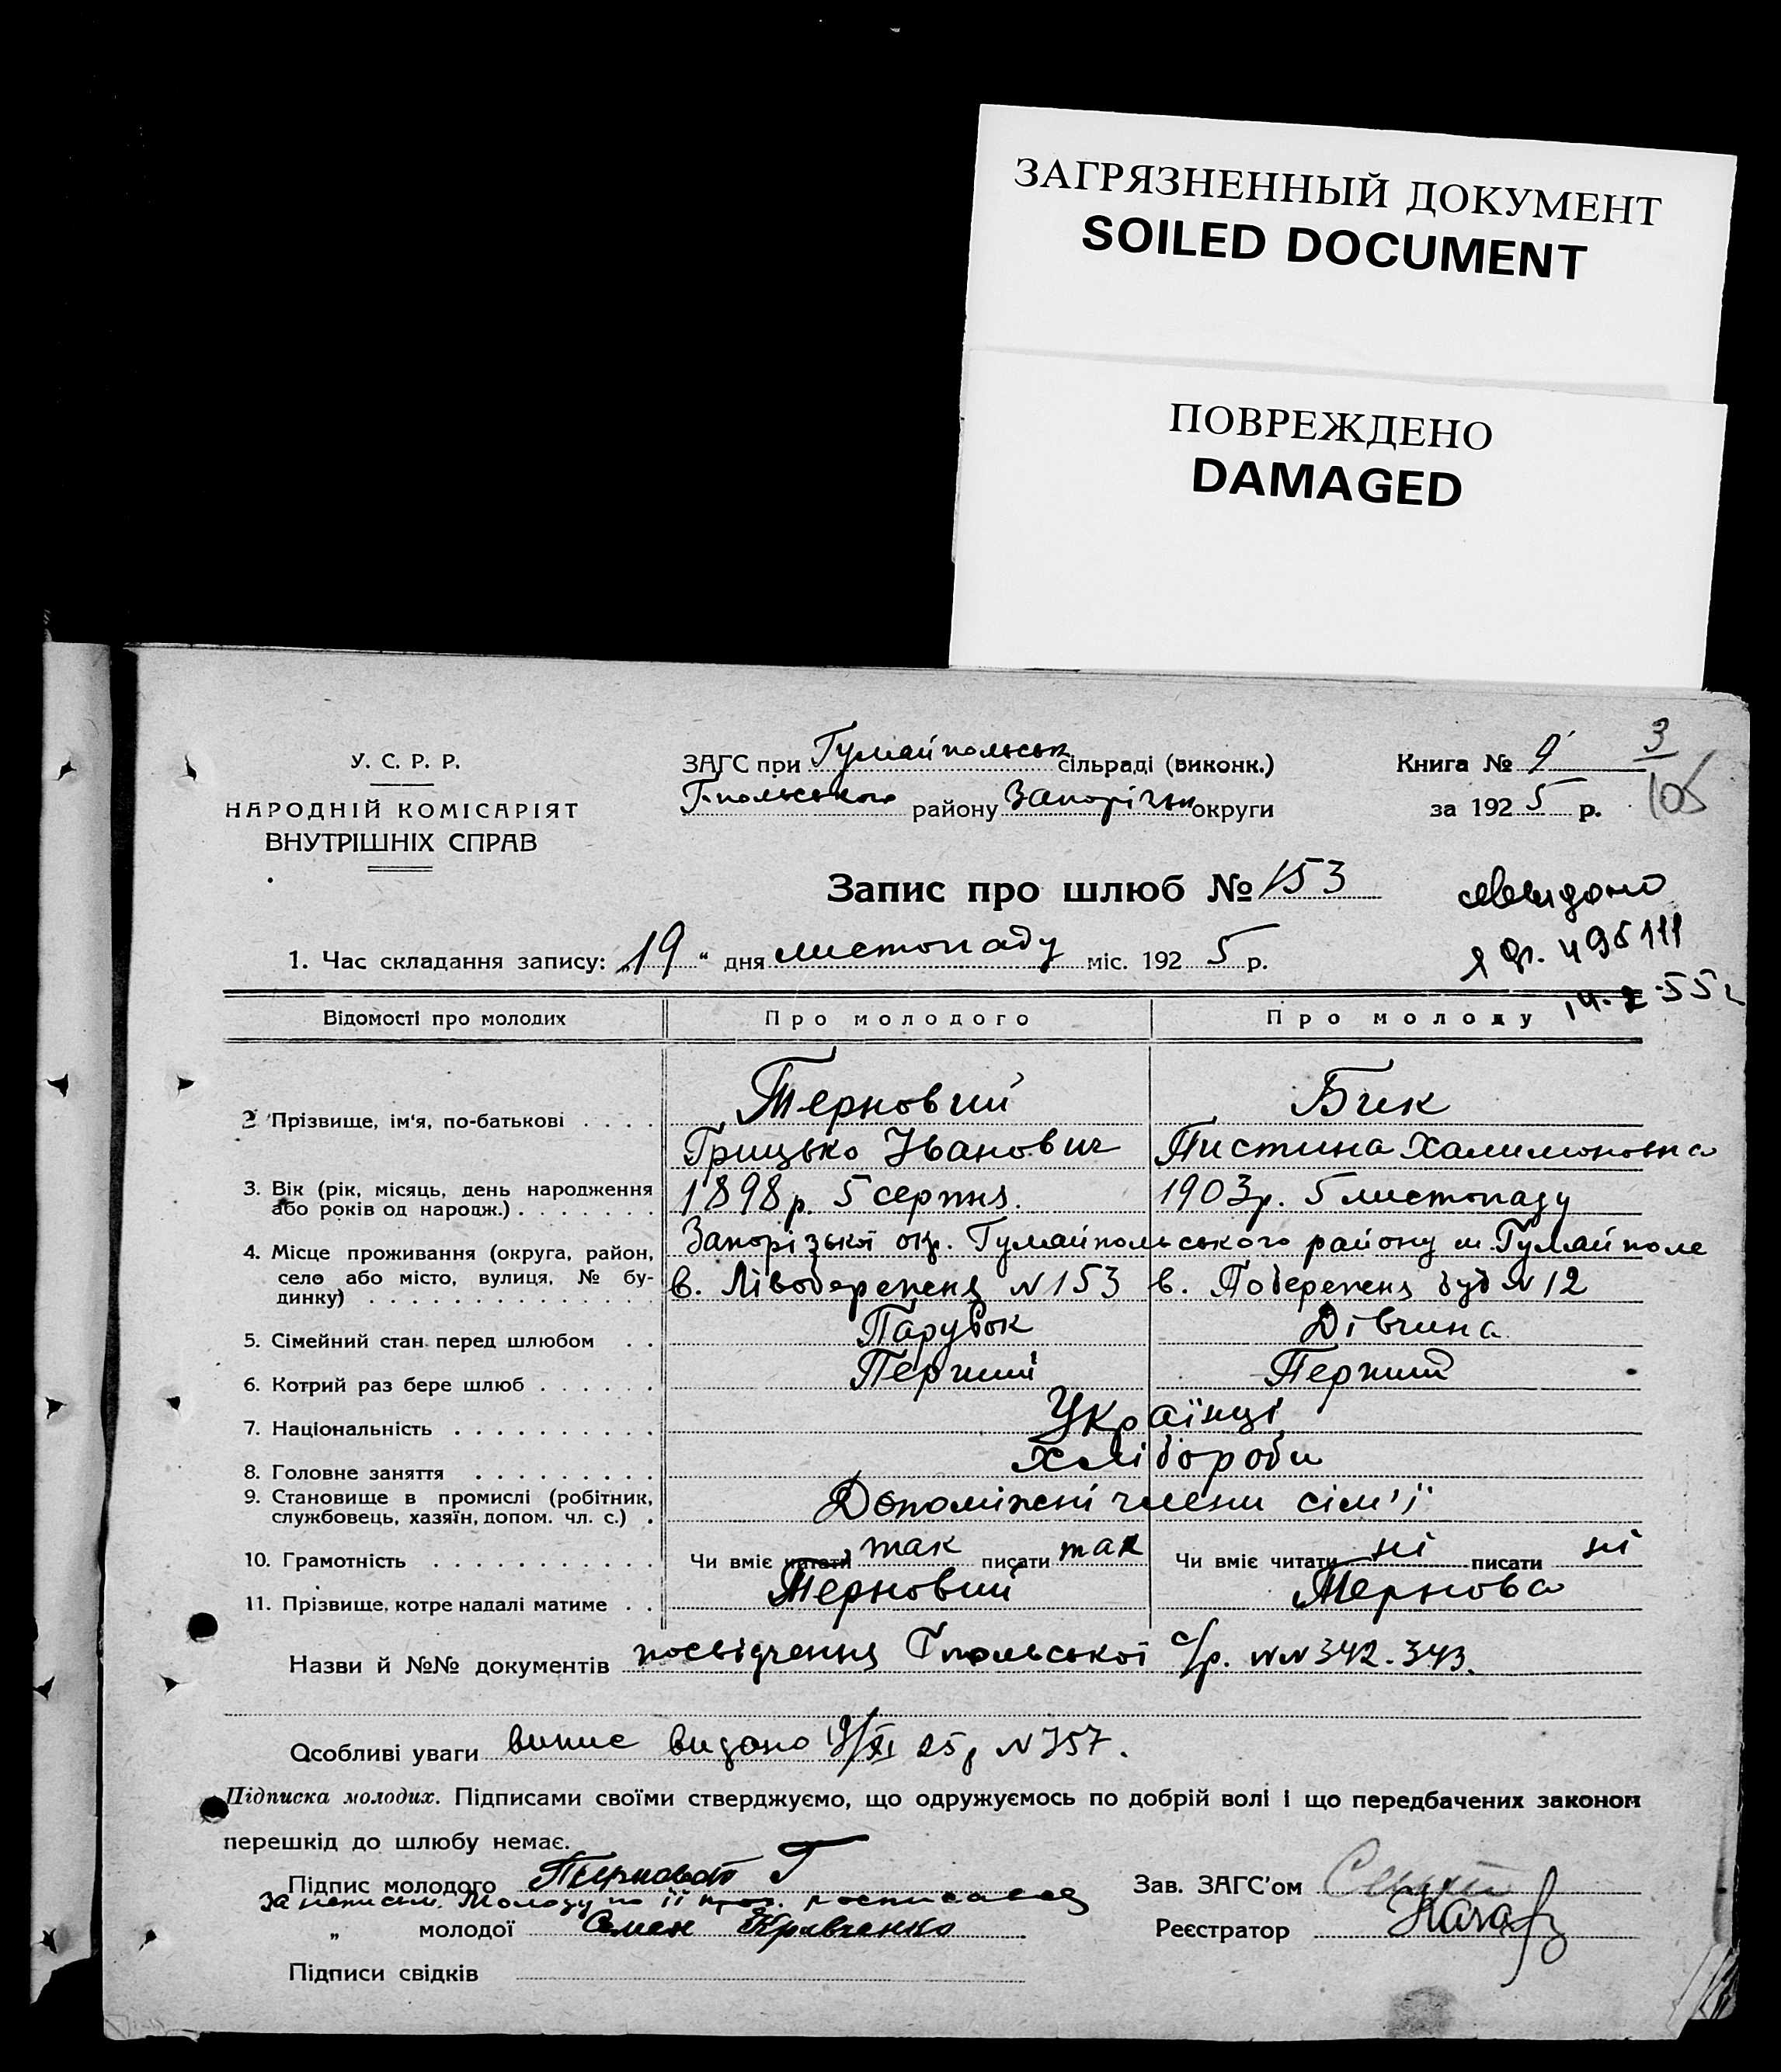 ЗАГРЯЗНЕННЫЙ ДОКУМЕНТ
SOILED DOCUMENT
ПОВРЕЖДЕНО
DAMAGED
У. С. Р. Р.
НАРОДНІЙ КОМІСАРІЯТ
ВНУТРІШНІХ СПРАВ
ЗАГС при Гуляйпольськ сільраді (виконк.)
Г-польського району Запорізьк округи
Книга № 9
за 1925 р.
3
106
Запис про шлюб № 153
1. Час складання запису: „19“ дня листопаду міс. 1925 р.
14. 2. 55 г
Відомості про молодих Про молодого Про молоду
2 Прізвище, ім'я, по-батькові . . . . Терновий Бик
Грицько Іванович Пистина Халимоновна
3. Вік (рік, місяць, день народження
або років од народж.) . . . . . . . 1898 р. 5 серпня. 1903 р. 5 листопаду
4. Місце проживання (округа, район, Запорізької окр. Гуляйпольського району м. Гуляйполе
село або місто, вулиця, № бу-
динку) . . . . . . . . . . . . . . в. Лівобережня N 153 в. Побережня буд N 12
5. Сімейний стан перед шлюбом . . Парубок Дівчина
6. Котрий раз бере шлюб . . . . . . Перший Перший
7. Національність . . . . . . . . . . Українці
8. Головне заняття . . . . . . . . . Хлібороби
9. Становище в промислі (робітник,
службовець, хазяїн, допом. чл. с.) . Допоміжні члени сім'ї
10. Грамотність . . . . . . . . . . . Чи вміє читати так писати так Чи вміє читати ні писати ні
11. Прізвище, котре надалі матиме . . Терновий Тернова
Назви й №№ документів посвідчення Гпольської с/р. NN 342. 343.
Особливі уваги випис видано 19/XI 25 р N 757.
Підписка молодих. Підписами своїми стверджуємо, що одружуємось по добрій волі і що передбачених законом
перешкід до шлюбу немає.
Підпис молодого Терновой Г
Зав. ЗАГС'ом
За неписьм. Молоду по її прох. росписався
„ молодої Семен Кравченко
Реєстратор
Підписи свідків